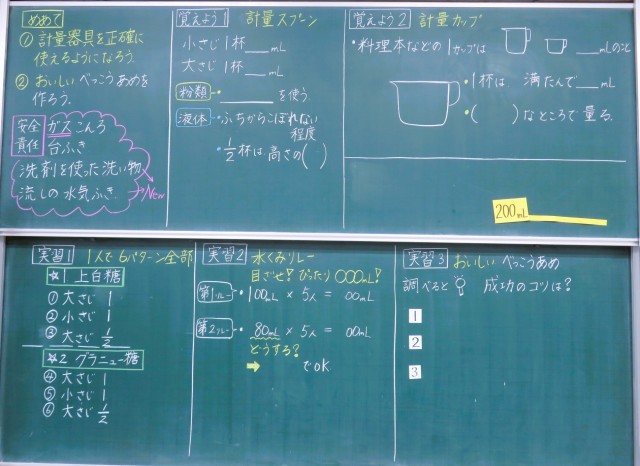 めあて
① 計量器具を正確に
使えるようになろう.
② おいしい べっこうあめを
作ろう.
安全
責任
ガスこんろ
台ふき
洗剤を使った洗い物
流しの水気ふき. →New
覚えよう1 計量スプーン
小さじ1杯 ___mL
大さじ1杯 ___mL
粉類 • ______ を使う.
液体 • ふちからこぼれない
程度
• 1/2杯は, 高さの( )
覚えよう2 計量カップ
• 料理本などの1カップは ___mLのこと
• 1杯は 満たんで___mL
• ( )なところで量る.
200mL
実習1 1人で6パターン全部
☆1 上白糖
① 大さじ 1
② 小さじ 1
③ 大さじ 1/2
☆2 グラニュー糖
④ 大さじ 1
⑤ 小さじ 1
⑥ 大さじ 1/2
実習2 水くみリレー
目ざせ! ぴったり 〇〇〇mL!
第1リレー • 100mL × 5人 = 〇〇mL
第2リレー • 80mL × 5人 = 〇〇mL
どうする?
➡ でOK
実習3 おいしい べっこうあめ
調べると 成功のコツは?
1
2
3